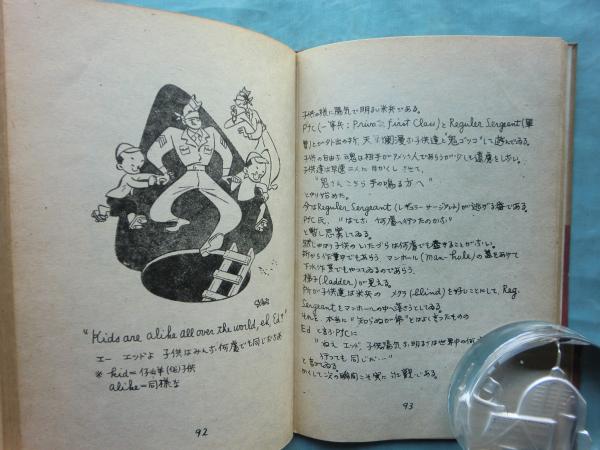 "Kids are alike all over the world, eh, Ed?"
エー エッドよ 子供はみんな何處でも同じだなあ
* kid=仔山羊(俗)子供
alike=同様な
92
子供の様に陽気で明るい米兵である。
Pfc(一等兵: Private first Class)とReguler Sergeant(軍
曹)とが外出の折、天真爛漫な子供達と"鬼ゴッコ"して遊んでゐる。
子供の自由な魂は相手がアメリカ人であらうが少しも遠慮をしない。
子供達は早速二人に目かくしさせて、
"鬼さんこちら手の鳴る方へ"
とやり始めた。
今はReguler Sergeant(レギュラー サージアント)が逃がる番である。
Pfc氏、"はてな、何處へ行ったのかな"
と暫し思案してゐる。
然しやはり子供のいたづらは何處でも盡きることがない。
折から作業中でもあらう、マンホール(man-hole)の蓋をあけて
下水作業でもやってゐるのであらう、
梯子(ladder)が見える。
所が子供達は米兵の メクラ(blind)を好いことにして、Reg.
Sergeantをマンホールの中へ落さうとしてゐる。
それを、本当に"知らぬが佛"とはよく言ったもの
Edと言ふPfcに
"ねえ エッド、子供の陽気な明るさは世界中の何
行っても同じだ
と言ってゐる。
かくして次の瞬間こそ実に 観である。
93